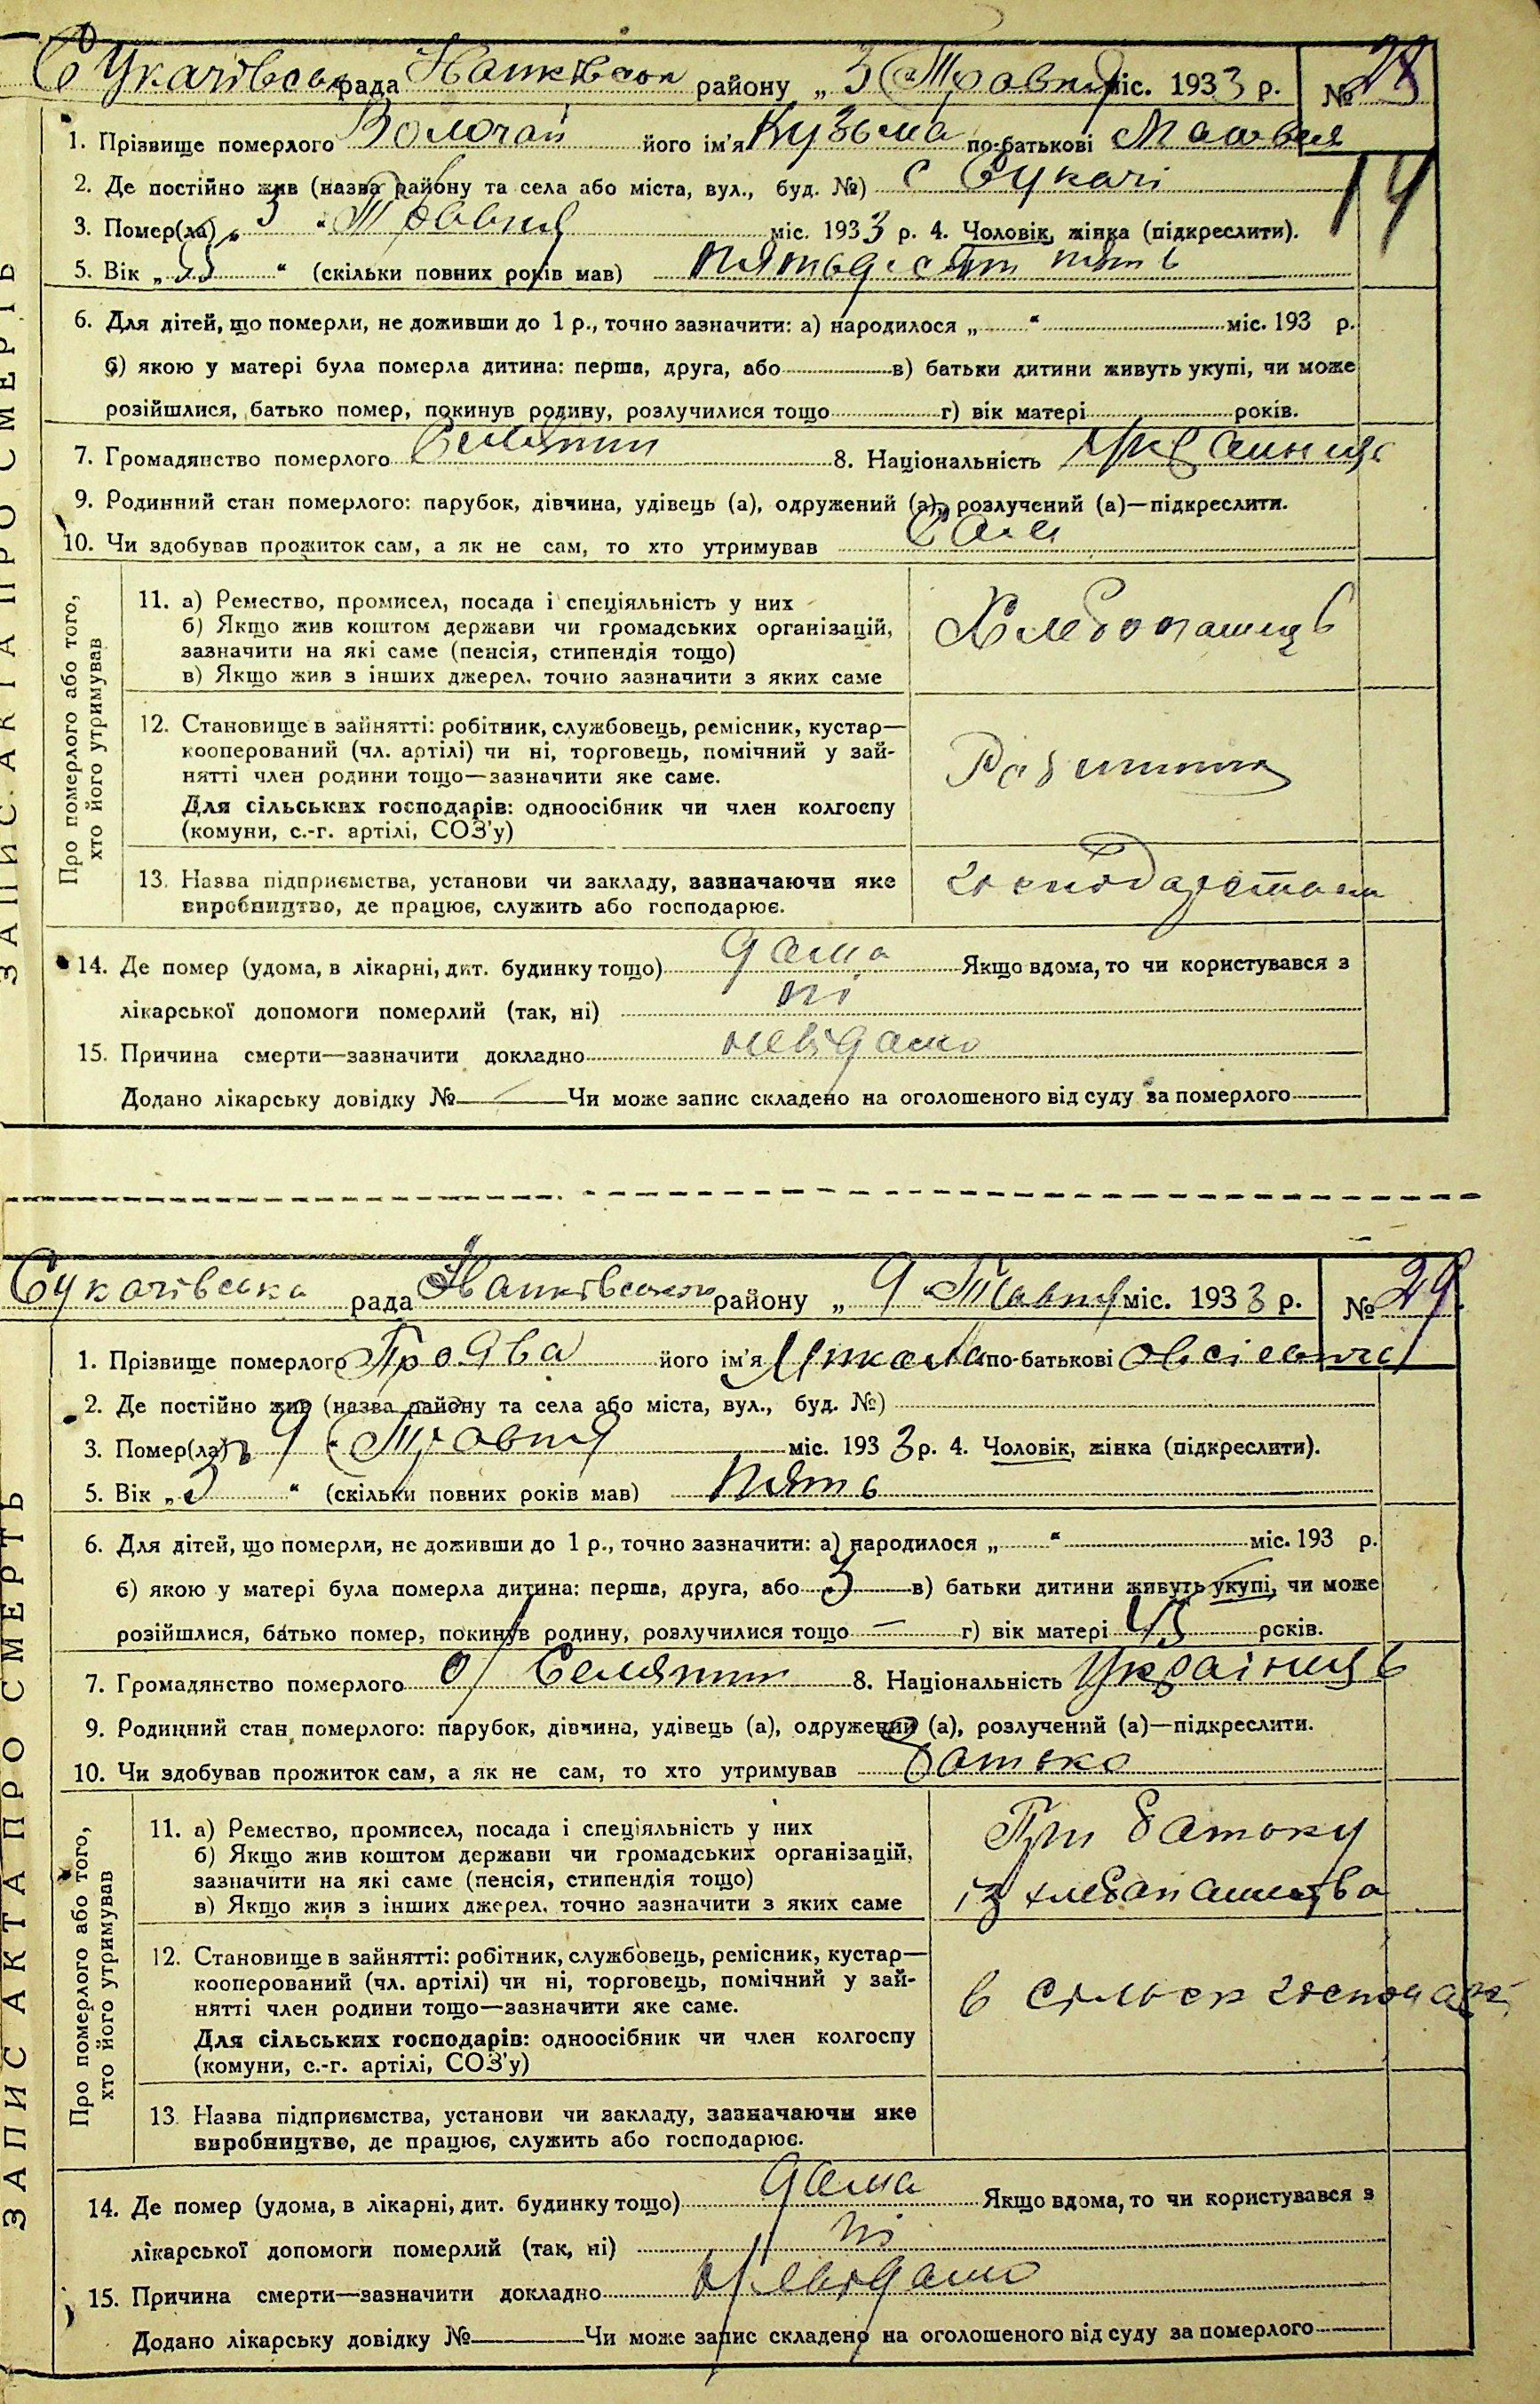 Сукачівська рада Іванківськ району „ 3 " Травня міс. 1933 р. № 28
1. Прізвище померлого Волочай його ім'я Кузьма по-батькові
2. Де постійно жив (назва району та села або міста, вул., буд. №) с Сукачі
14
3. Помер(ла) „ 3 " Травня міс. 1933 р. 4. Чоловік, жінка (підкреслити).
5. Вік „ 55 " (скільки повних років мав) пятьдесят пять
6. Для дітей, що померли, не доживши до 1 р., точно зазначити: а) народилося „ " міс. 193 р.
б) якою у матері була померла дитина: перша, друга, або в) батьки дитини живуть укупі, чи може
розійшлися, батько помер, покинув родину, розлучилися тощо г) вік матері років.
7. Громадянство померлого Селянин 8. Національність Українець
9. Родинний стан померлого: парубок, дівчина, удівець (а), одружений (а), розлучений (а)—підкреслити.
10. Чи здобував прожиток сам, а як не сам, то хто утримував Сам
ЗАПИС АКТА ПРО СМЕРТЬ
Про померлого або того,
хто його утримував
11. а) Ремество, промисел, посада і спеціяльність у них
б) Якщо жив коштом держави чи громадських організацій,
зазначити на які саме (пенсія, стипендія тощо)
в) Якщо жив з інших джерел, точно зазначити з яких саме
Хлебопашець
12. Становище в зайнятті: робітник, службовець, ремісник, кустар—
кооперований (чл. артілі) чи ні, торговець, помічний у зай-
нятті член родини тощо—зазначити яке саме.
Для сільських господарів: одноосібник чи член колгоспу
(комуни, с.-г. артілі, СОЗ'у)
13. Назва підприємства, установи чи закладу, зазначаючи яке
виробництво, де працює, служить або господарює.
14. Де помер (удома, в лікарні, дит. будинку тощо) дома Якщо вдома, то чи користувався з
лікарської допомоги померлий (так, ні) ні
15. Причина смерти—зазначити докладно невідамо
Додано лікарську довідку № — Чи може запис складено на оголошеного від суду за померлого
Сукачівська рада Іванківською району „ 9 " Травня міс. 1933 р. № 29
1. Прізвище померлого його ім'я Микола по-батькові
2. Де постійно жив (назва району та села або міста, вул., буд. №)
3. Помер(ла) „ 9 " Травня міс. 1933 р. 4. Чоловік, жінка (підкреслити).
5. Вік „ 5 " (скільки повних років мав) пять
6. Для дітей, що померли, не доживши до 1 р., точно зазначити: а) народилося „ " міс. 193 р.
б) якою у матері була померла дитина: перша, друга, або 3 в) батьки дитини живуть укупі, чи може
розійшлися, батько помер, покинув родину, розлучилися тощо — г) вік матері 45 років.
7. Громадянство померлого Селянин 8. Національність Українець
9. Родинний стан померлого: парубок, дівчина, удівець (а), одружений (а), розлучений (а)—підкреслити.
10. Чи здобував прожиток сам, а як не сам, то хто утримував батько
ЗАПИС АКТА ПРО СМЕРТЬ
Про померлого або того,
хто його утримував
11. а) Ремество, промисел, посада і спеціяльність у них
б) Якщо жив коштом держави чи громадських організацій,
зазначити на які саме (пенсія, стипендія тощо)
в) Якщо жив з інших джерел, точно зазначити з яких саме
При батьку
із хлебапашества
12. Становище в зайнятті: робітник, службовець, ремісник, кустар—
кооперований (чл. артілі) чи ні, торговець, помічний у зай-
нятті член родини тощо—зазначити яке саме.
Для сільських господарів: одноосібник чи член колгоспу
(комуни, с.-г. артілі, СОЗ'у)
в сільск господар
13. Назва підприємства, установи чи закладу, зазначаючи яке
виробництво, де працює, служить або господарює.
14. Де помер (удома, в лікарні, дит. будинку тощо) дома Якщо вдома, то чи користувався з
лікарської допомоги померлий (так, ні) ні
15. Причина смерти—зазначити докладно невідамо
Додано лікарську довідку № Чи може запис складено на оголошеного від суду за померлого